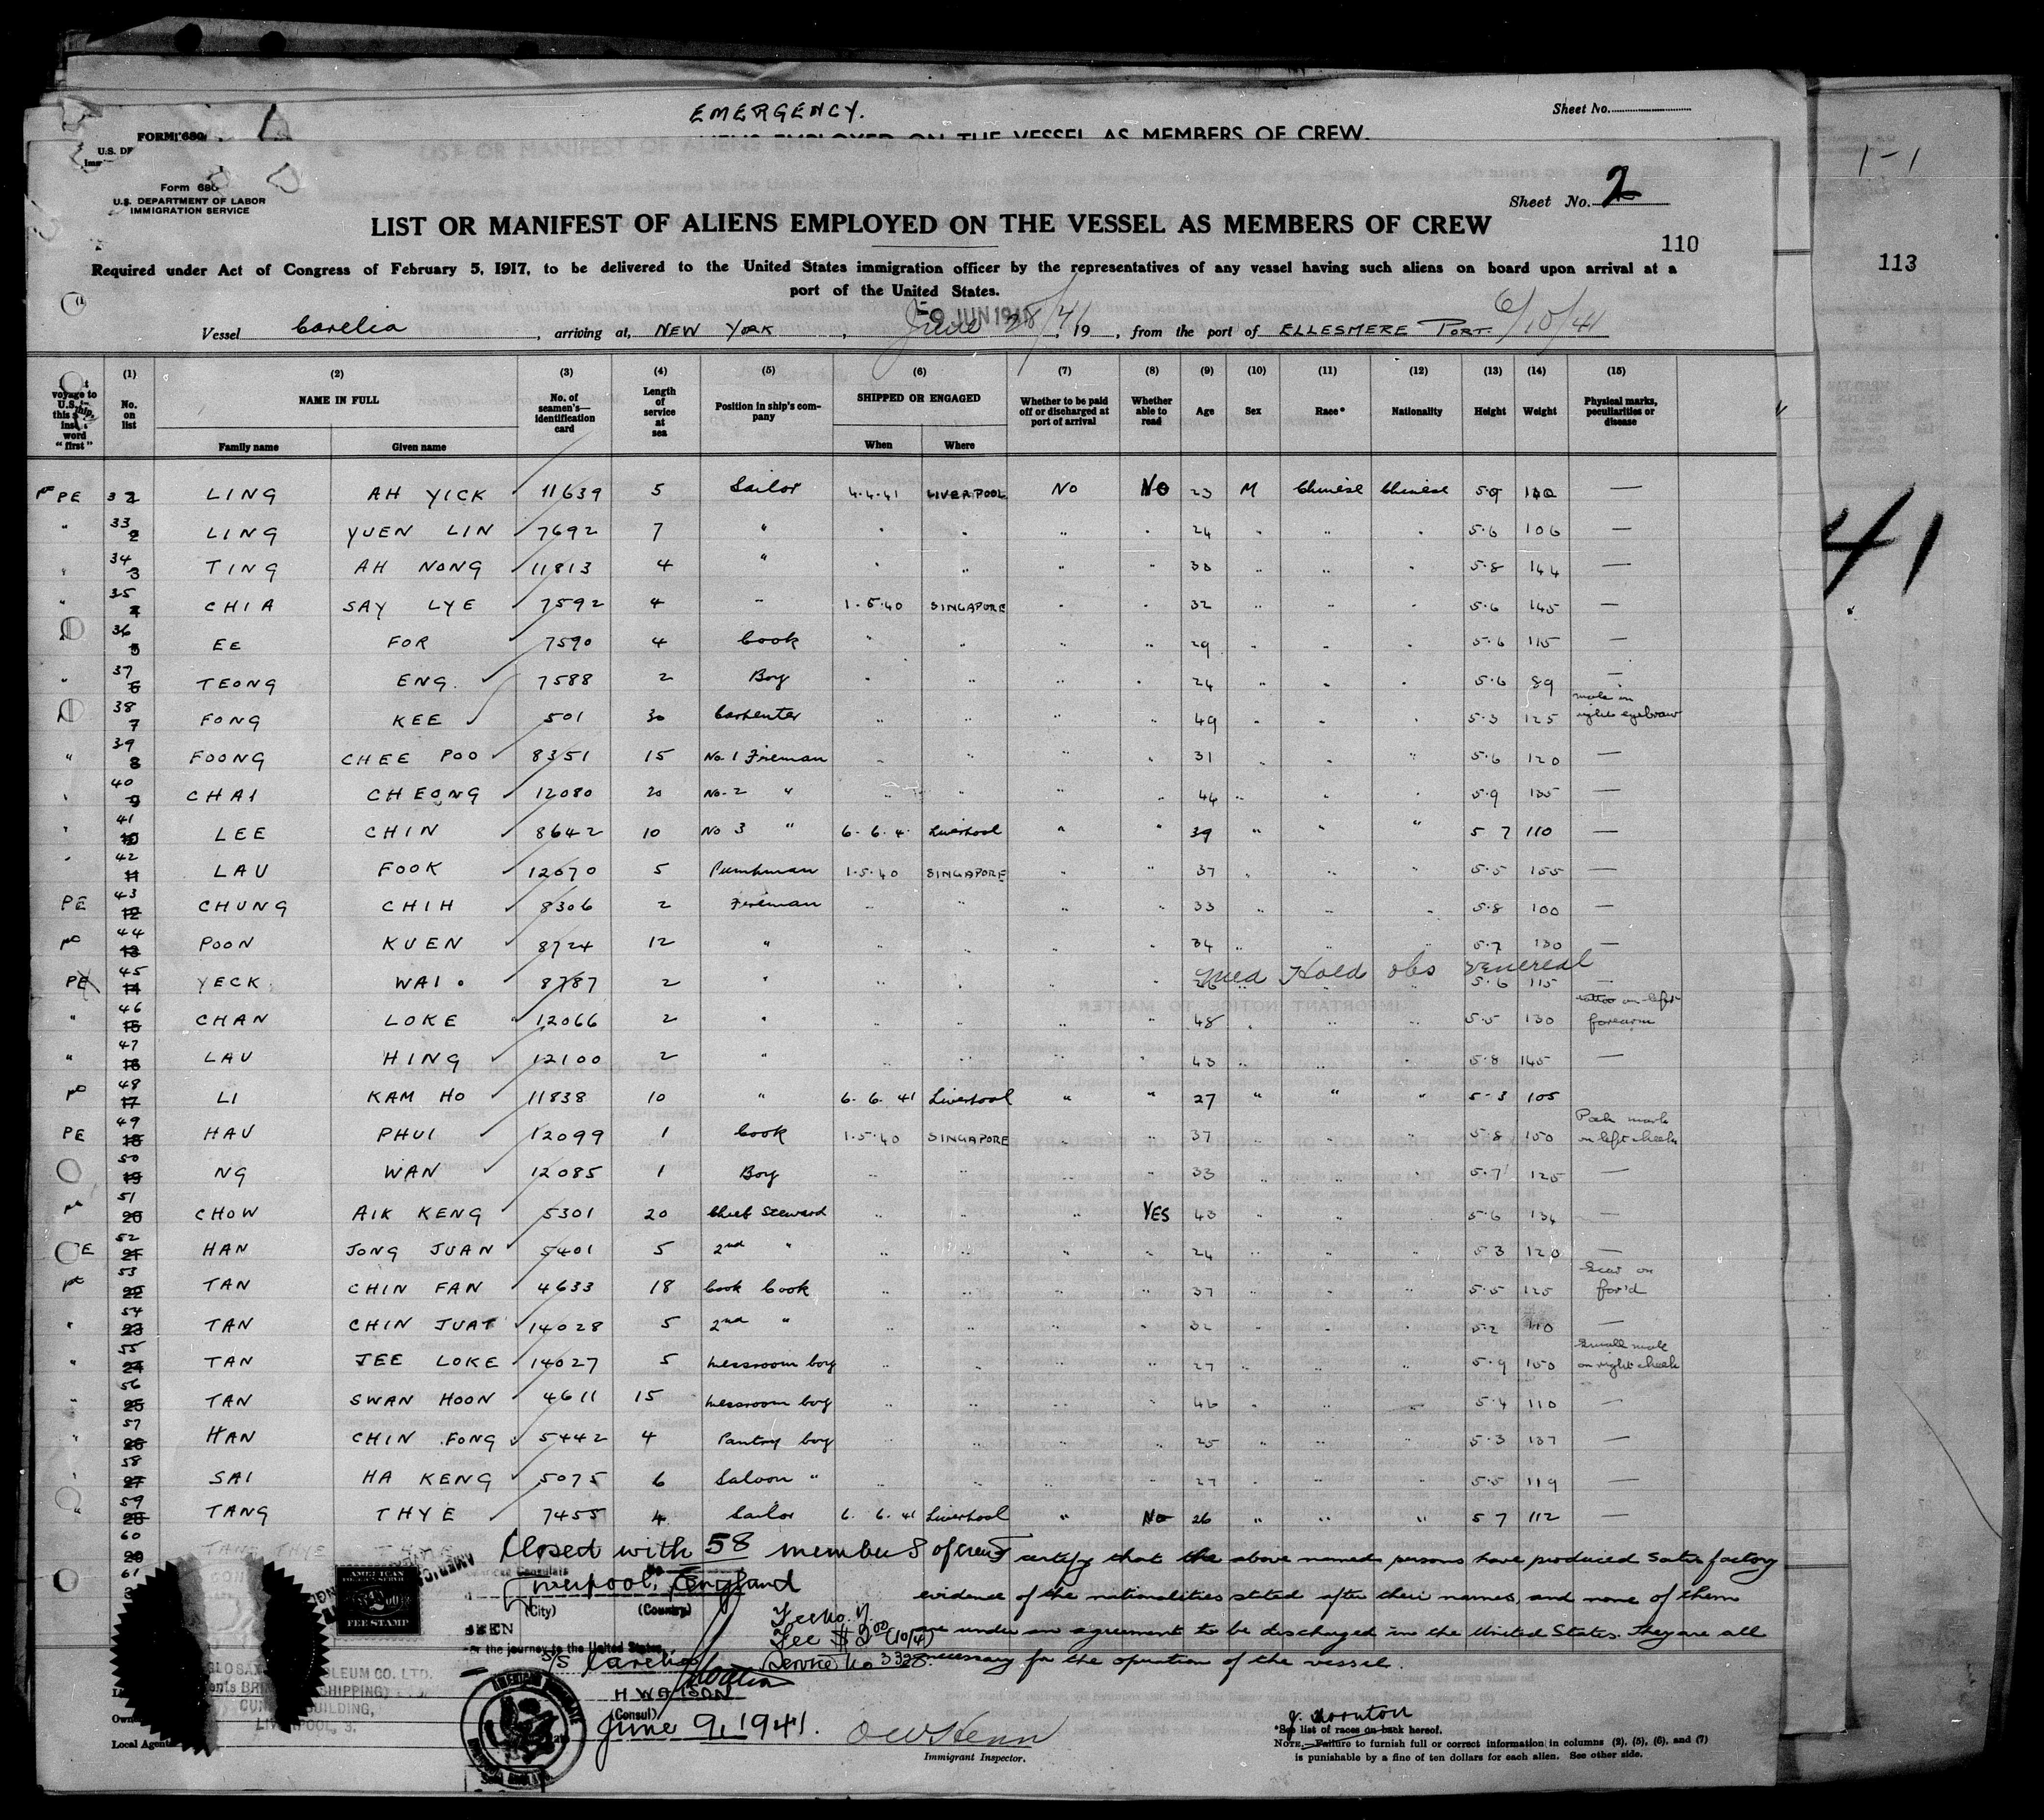 EMERGENCY.
Sheet No.
FORM 680
ALIENS EMPLOYED ON THE VESSEL AS MEMBERS OF CREW.
Form 680
U.S. DEPARTMENT OF LABOR
IMMIGRATION SERVICE
Sheet No. 2
LIST OR MANIFEST OF ALIENS EMPLOYED ON THE VESSEL AS MEMBERS OF CREW
110
113
1-1
41
Required under Act of Congress of February 5, 1917, to be delivered to the United States immigration officer by the representatives of any vessel having such aliens on board upon arrival at a
port of the United States.
Vessel Carelia, arriving at, NEW YORK, June 28/41, 19, from the port of ELLESMERE PORT. 6/10/41
9 JUN 1941
(1) (2) (3) (4) (5) (6) (7) (8) (9) (10) (11) (12) (13) (14) (15)
voyage to U.S. this ship, word "first"
No. on list
NAME IN FULL
Family name Given name
No. of seamen's identification card
Length of service at sea
Position in ship's company
SHIPPED OR ENGAGED
When Where
Whether to be paid off or discharged at port of arrival
Whether able to read
Age Sex Race* Nationality Height Weight
Physical marks, peculiarities or disease
PE 32 LING AH YICK 11639 5 Sailor 4.4.41 LIVERPOOL No No 23 M Chinese Chinese 5.9 —
" 33 LING YUEN LIN 7692 7 " " " " " 24 " " " 5.6 106 —
" 34 TING AH NONG 11813 4 " " " " " 30 " " " 5.8 144 —
" 35 CHIA SAY LYE 7592 4 " 1.5.40 SINGAPORE " " 32 " " " 5.6 145 —
36 EE FOR 7590 4 Cook " " " " 29 " " " 5.6 115 —
" 37 TEONG ENG 7588 2 Boy " " " " 24 " " " 5.6 89 —
38 FONG KEE 501 30 Carpenter " " " " 49 " " " 5.3 125 mole in right eyebrow
" 39 FOONG CHEE POO 8351 15 No. 1 Fireman " " " " 31 " " " 5.6 120 —
" 40 CHAI CHEONG 12080 20 No. 2 " " " " " 44 " " " 5.9 135 —
" 41 LEE CHIN 8642 10 No 3 " 6.6.4 Liverpool " " 39 " " " 5 7 110 —
" 42 LAU FOOK 12070 5 Pumpman 1.5.40 SINGAPORE " " 37 " " " 5.5 155 —
PE 43 CHUNG CHIH 8306 2 Fireman " " " " 33 " " " 5.8 100 —
44 POON KUEN 8724 12 " " " " " 34 " " " 5.7 130 —
PE 45 YECK WAI 8787 2 " " " " " 26 5.6 115 —
Med Hold obs Venereal
" 46 CHAN LOKE 12066 2 " " " " " 48 " " " 5.5 130 tattoo on left forearm
" 47 LAU HING 12100 2 " " " " " 43 " " " 5.8 145 —
48 LI KAM HO 11838 10 " 6.6.41 Liverpool " " 27 " " " 5-3 105
PE 49 HAU PHUI 12099 1 Cook 1.5.40 SINGAPORE " " 37 " " " 5.8 150 Pock mark on left cheek
50 NG WAN 12085 1 Boy " " " " 33 " " " 5.7 125 —
51 CHOW AIK KENG 5301 20 Chief Steward " " " YES 43 " " " 5.6 134 —
52 HAN JONG JUAN 5401 5 2nd " " " " " 24 " " " 5.3 120 —
53 TAN CHIN FAN 4633 18 Cook Cook " " " " 37 " " " 5.5 125 Scar on for'd
" 54 TAN CHIN JUAT 14028 5 2nd " " " " " 32 " " " 5.2 110 —
" 55 TAN JEE LOKE 14027 5 messroom boy " " " " 27 " " " 5.9 150 Small mole on right cheek
" 56 TAN SWAN HOON 4611 15 messroom boy " " " " 46 " " " 5.4 110 —
" 57 HAN CHIN FONG 5442 4 Pantry boy " " " " 25 " " " 5.3 137 —
" 58 SAI HA KENG 5075 6 Saloon " " " " " 27 " " " 5.5 119 —
" 59 TANG THYE 7455 4 Sailor 6.6.41 Liverpool " No 26 " " " 5 7 112 —
60
61
Closed with 58 members of crew
I certify that the above named persons have produced satisfactory
evidence of the nationalities stated after their names, and none of them
are under an agreement to be discharged in the United States. They are all
necessary for the operation of the vessel.
Liverpool, England
(City) (Country)
SEEN
For the journey to the United States
S/S Carelia
Fee No. 7
Fee $ 2.00 (10/4)
Service No 3328
AMERICAN
FEE STAMP
H WATSON
(Consul)
June 9, 1941.
PETROLEUM CO. LTD.
(SHIPPING)
BUILDING,
LIVERPOOL, 3.
Local Agents
Immigrant Inspector.
J. Thornton
*See list of races on back hereof.
NOTE.—Failure to furnish full or correct information in columns (2), (5), (6), and (7)
is punishable by a fine of ten dollars for each alien. See other side.